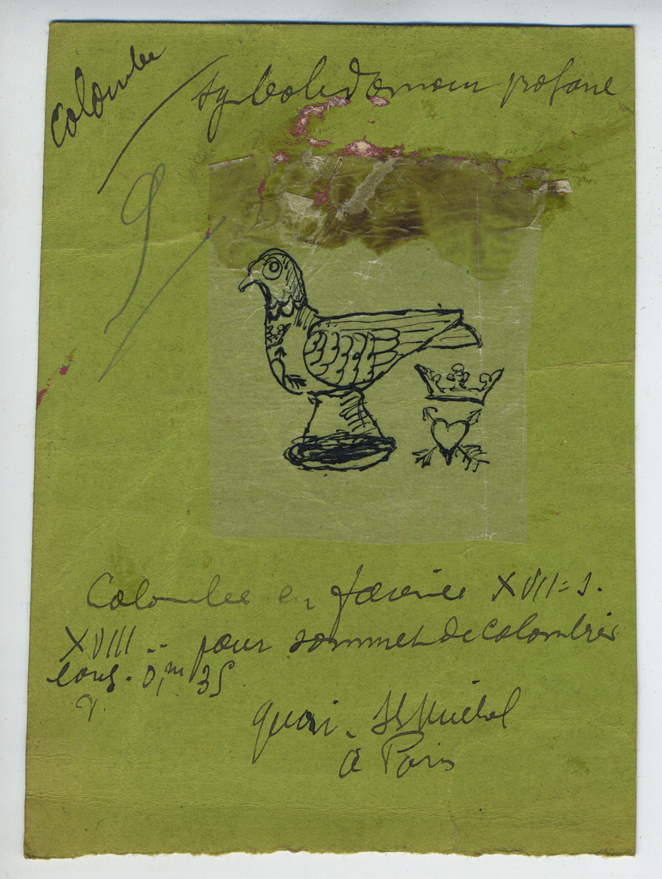 Colombe
symbole d'amour profane
Colombe en faïence XVII= s.
XVIII .. pour sommet de colombier
long. 0,m 35
quai. St Michel
à Paris